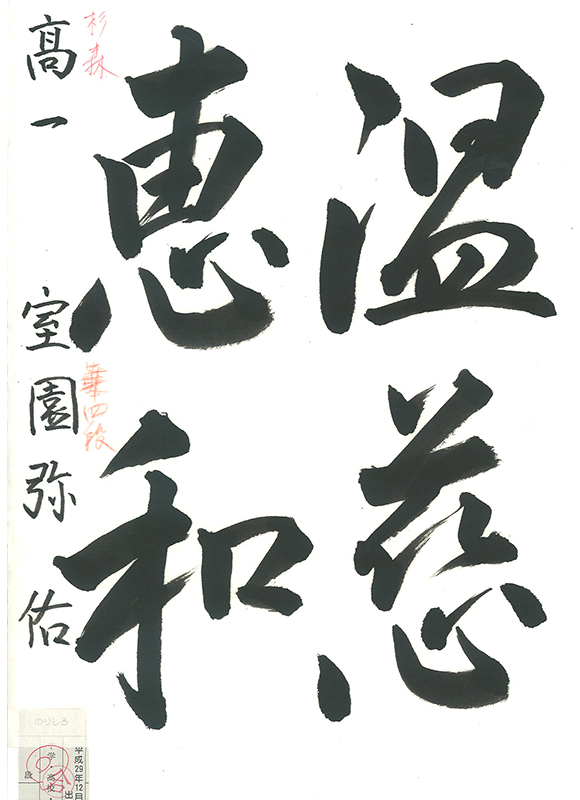 温慈
恵和
杉森
高一 室園弥佑
準四段
のりしろ
平成29年12月
出
学・高校・
段